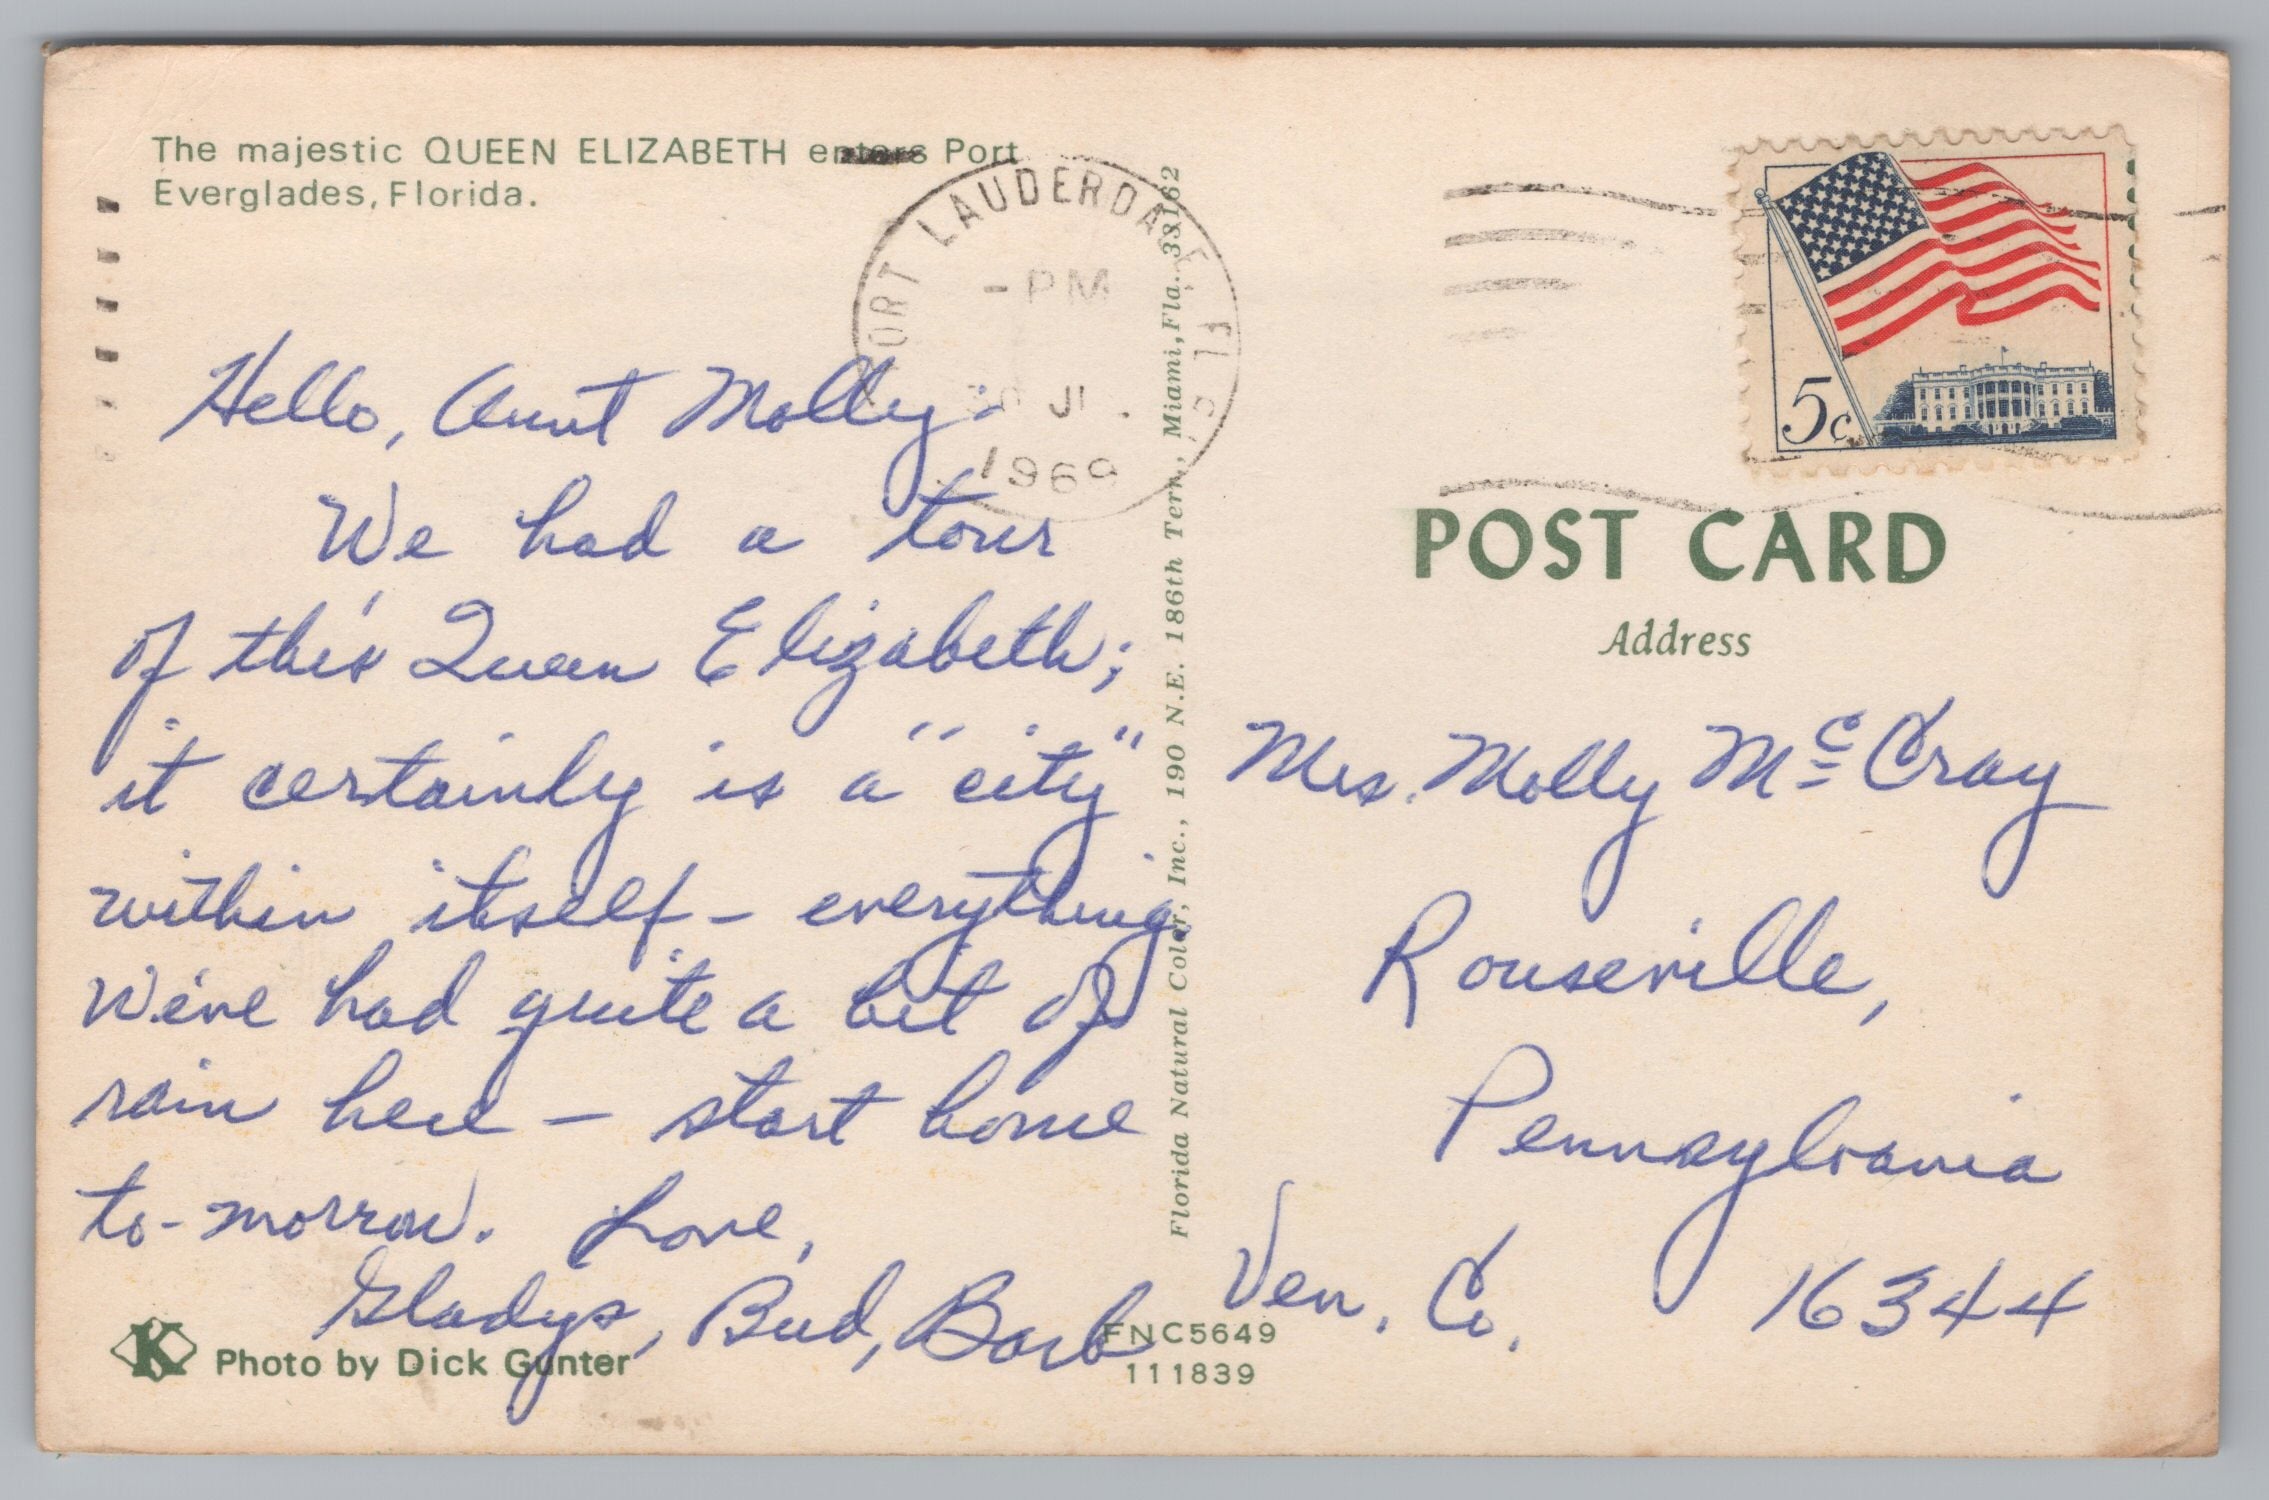 The majestic QUEEN ELIZABETH enters Port
Everglades, Florida.
FORT LAUDERDALE, FL
- PM
1969
Hello, Aunt Molly:
We had a tour
of this Queen Elizabeth;
it certainly is a "city"
within itself - everything.
We've had quite a bit of
rain here - start home
to-morrow. Love,
Gladys, Bud, Barb
Photo by Dick Gunter
K
FNC5649
111839
Florida Natural Color, Inc., 190 N.E. 186th Terr., Miami, Fla. 33162
5c
POST CARD
Address
Mrs. Molly McCray
Rouseville,
Pennsylvania
Ven. Co. 16344